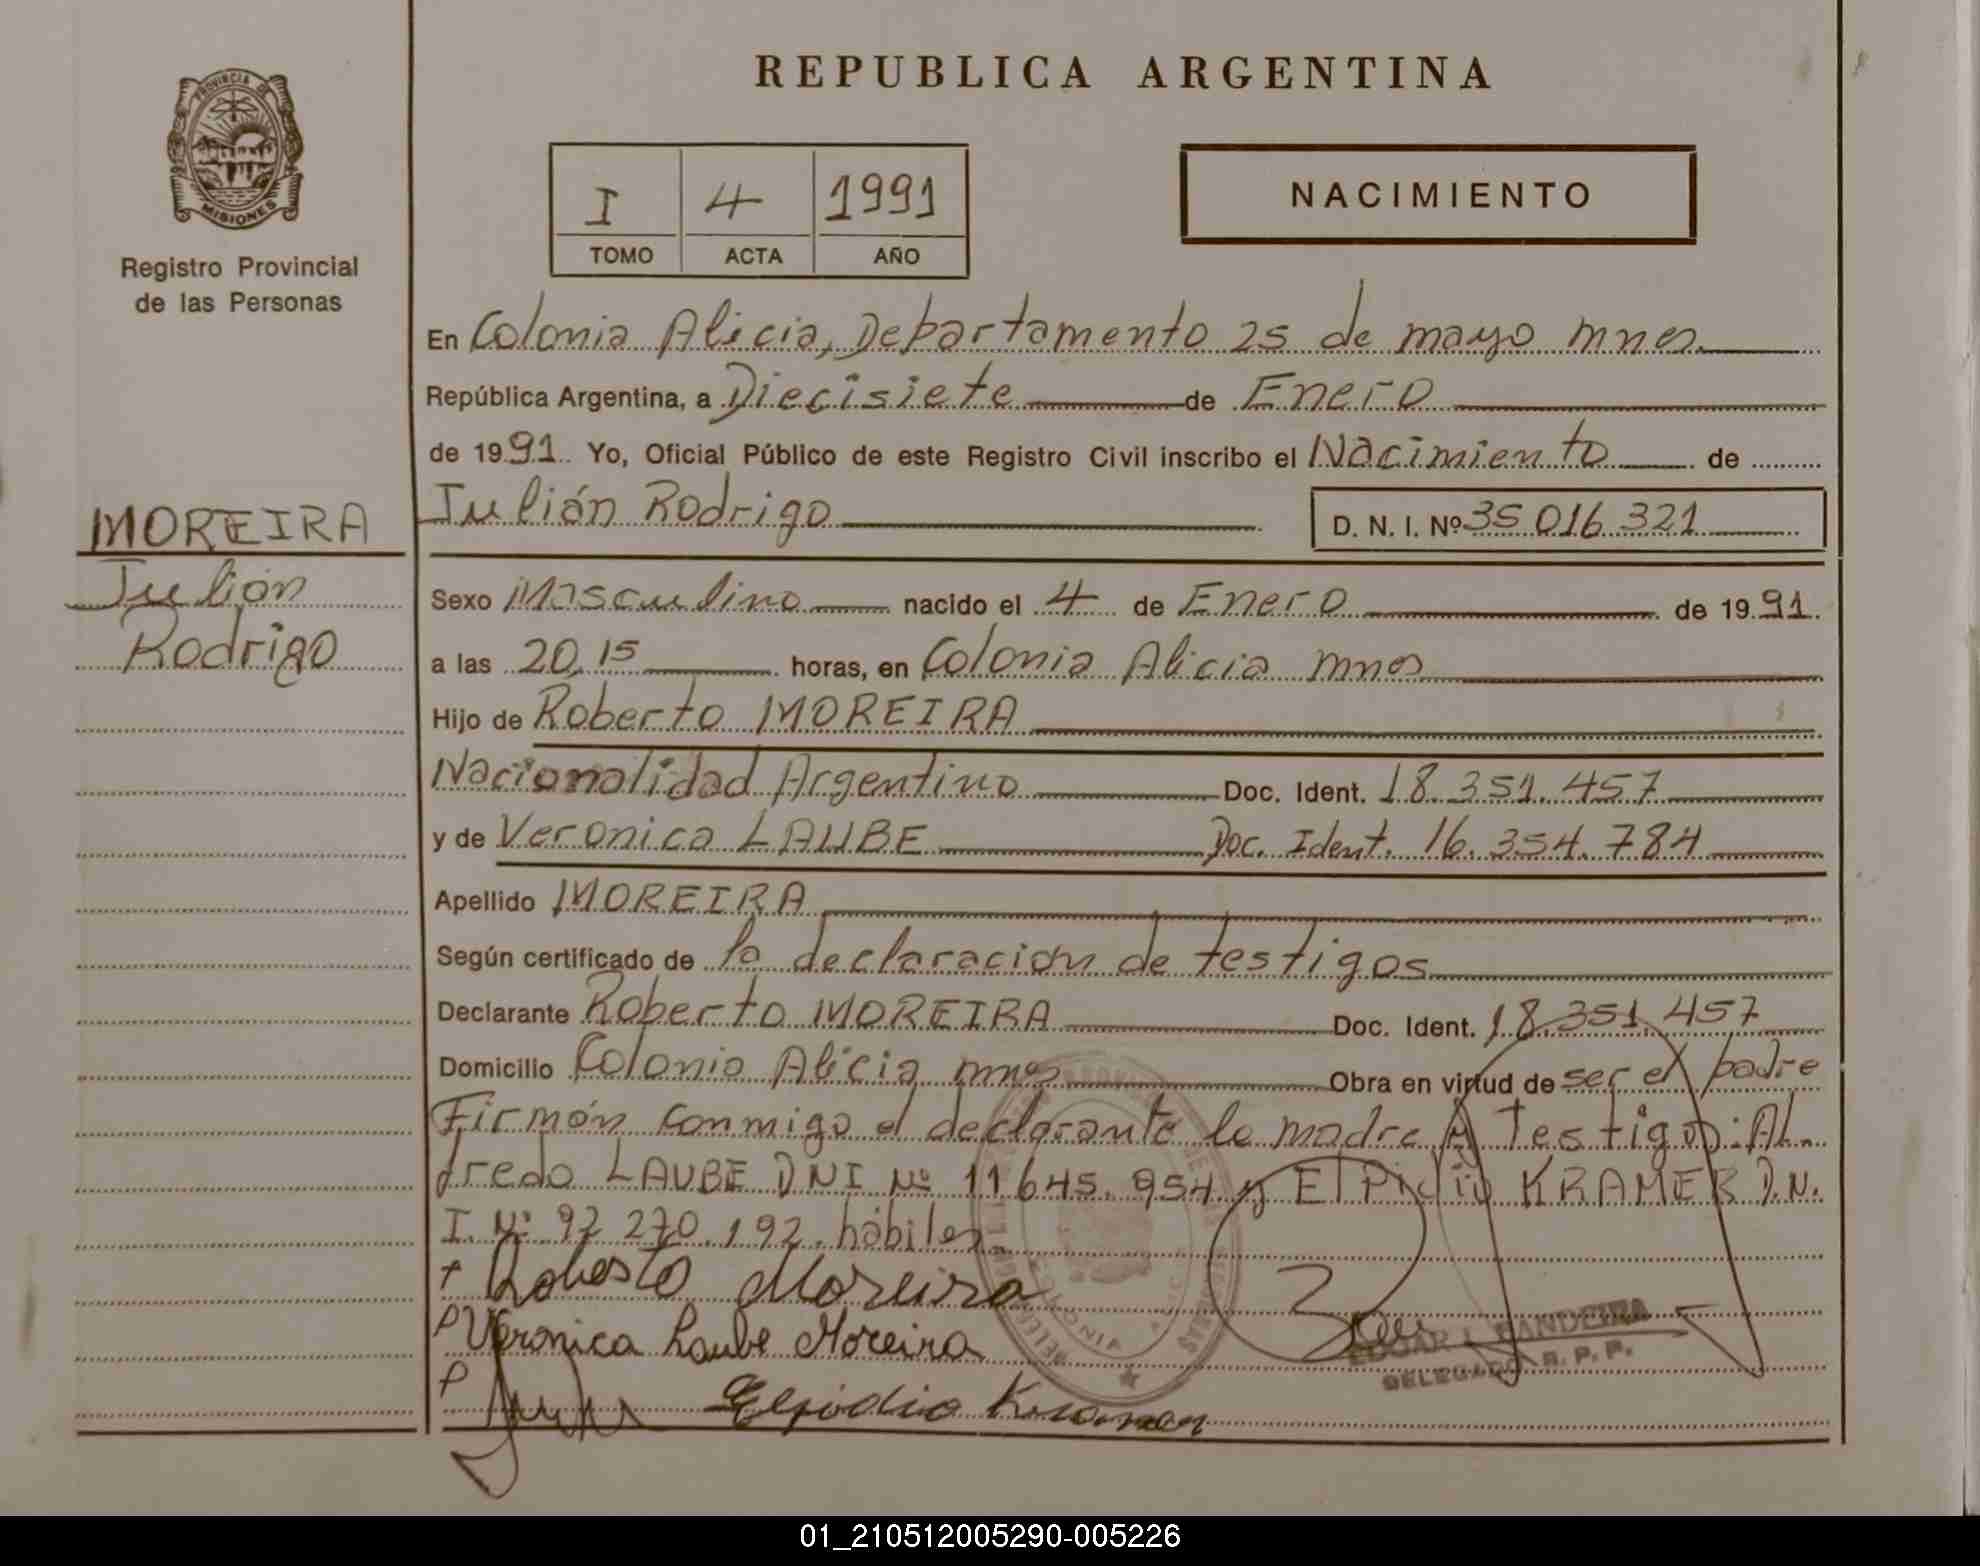 REPUBLICA ARGENTINA
PROVINCIA DE
MISIONES
Registro Provincial
de las Personas
I 4 1991
TOMO ACTA AÑO
NACIMIENTO
En Colonia Alicia, Departamento 25 de mayo mnes.
República Argentina, a Diecisiete de Enero
de 1991. Yo, Oficial Público de este Registro Civil inscribo el Nacimiento de
Julián Rodrigo D. N. I. Nº 35.016.321
MOREIRA
Julián
Rodrigo
Sexo Masculino nacido el 4 de Enero de 1991.
a las 20,15 horas, en Colonia Alicia mnes
Hijo de Roberto MOREIRA
Nacionalidad Argentino Doc. Ident. 18.351.457
y de Veronica LAUBE Doc. Ident. 16.354.784
Apellido MOREIRA
Según certificado de la declaración de testigos
Declarante Roberto MOREIRA Doc. Ident. 18.351.457
Domicilio Colonia Alicia mnes Obra en virtud de ser el padre
Firmán conmigo el declarante la madre y Testigos: AL-
fredo LAUBE DNI Nº 11.645.954 y ElPidio KRAMER D.N.
I. Nº 92.270.192. hábiles.
Roberto Moreira
Veronica Laube Moreira
Elpidio Kramer
EDGAR L. BANDEIRA
DELEGADO R. P. P.
01_210512005290-005226